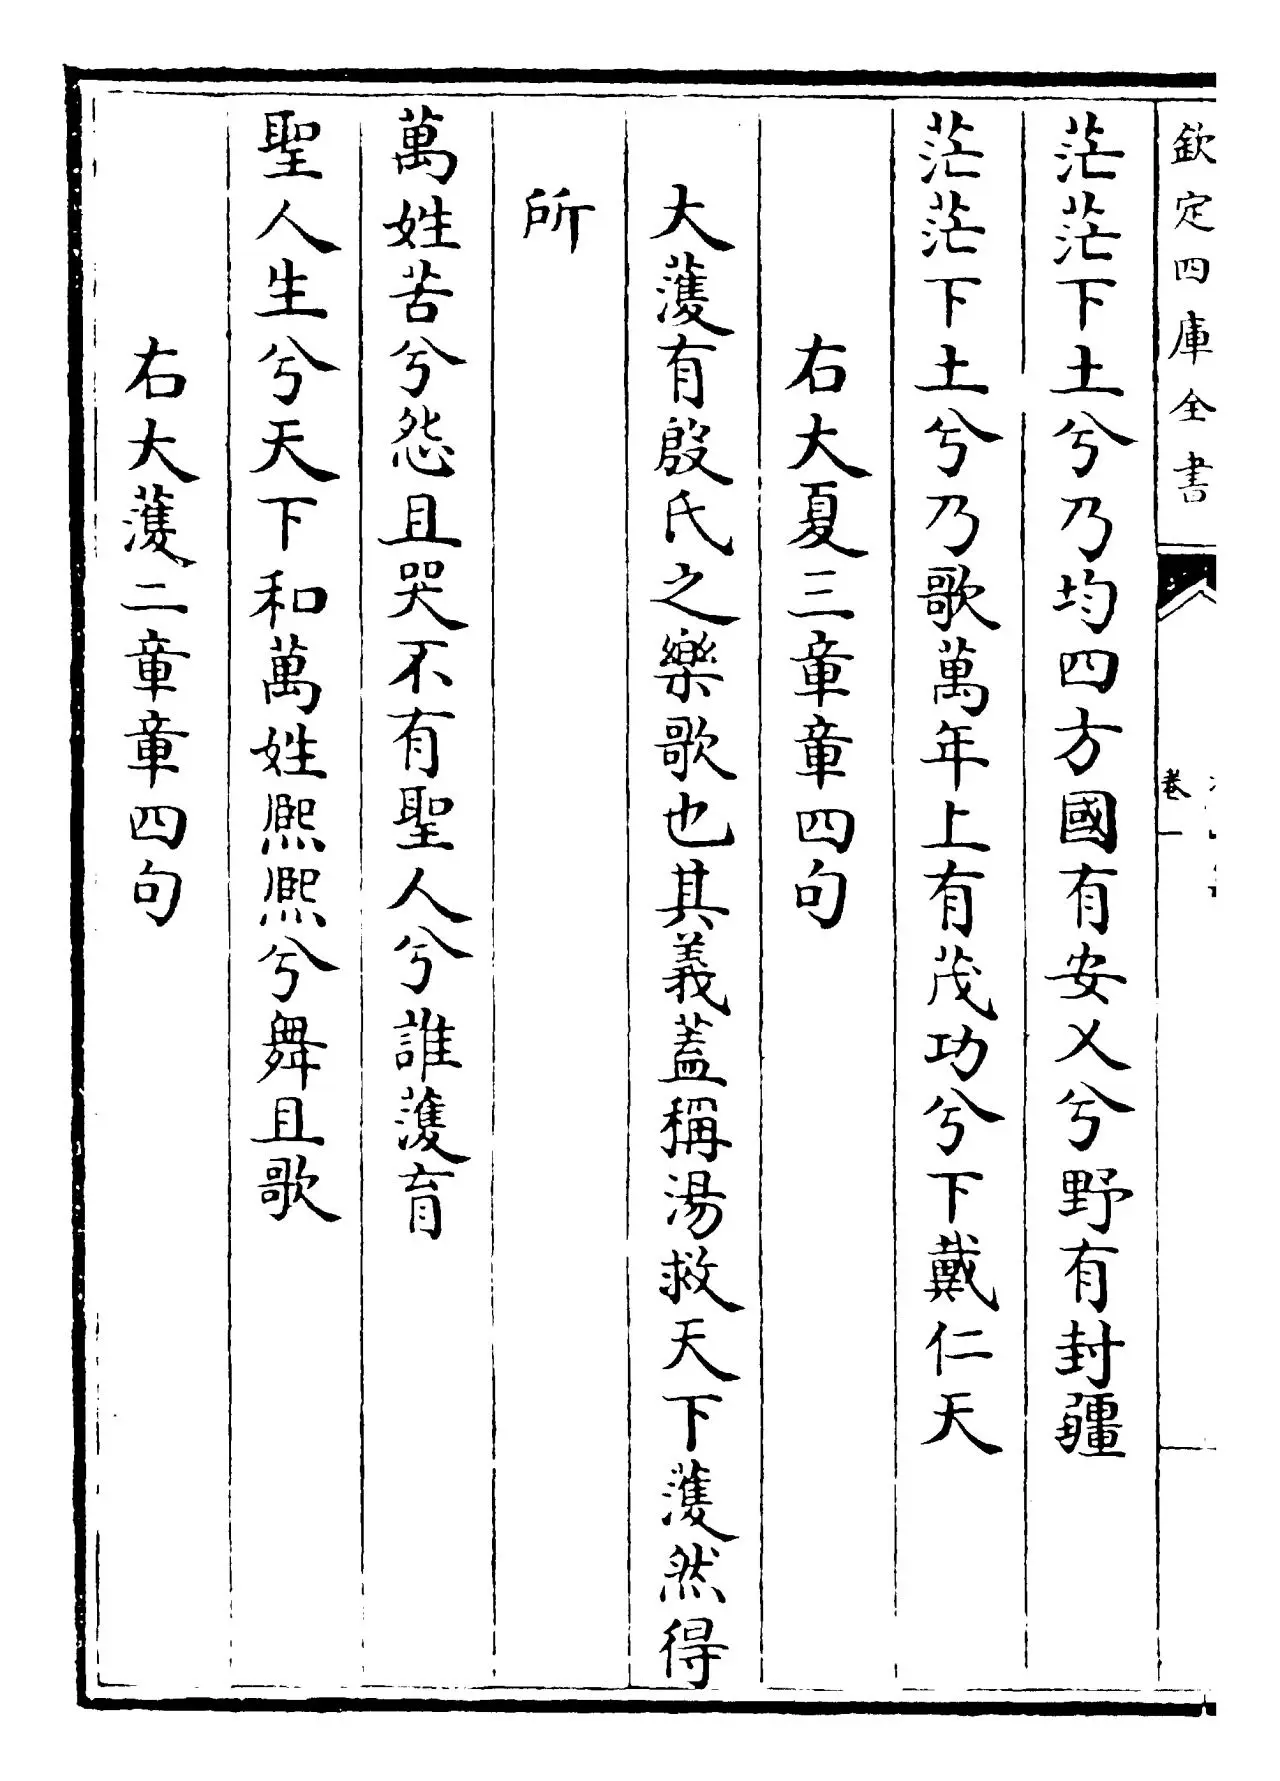 欽定四庫全書
卷一
茫茫下土兮乃均四方國有安乂兮野有封疆
茫茫下土兮乃歌萬年上有茂功兮下戴仁天
右大夏三章章四句
大濩有殷氏之樂歌也其義蓋稱湯救天下濩然得
所
萬姓苦兮怨且哭不有聖人兮誰濩育
聖人生兮天下和萬姓熈熈兮舞且歌
右大濩二章章四句